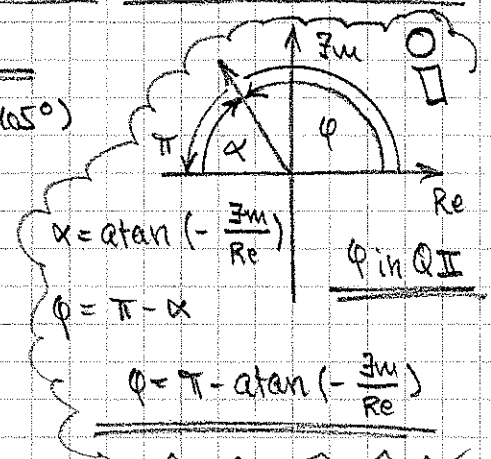 ℑm
i
05°)
π
α
φ
Re
α = atan (- ℑm/Re)
φ in QII
φ = π - α
φ = π - atan (- ℑm/Re)